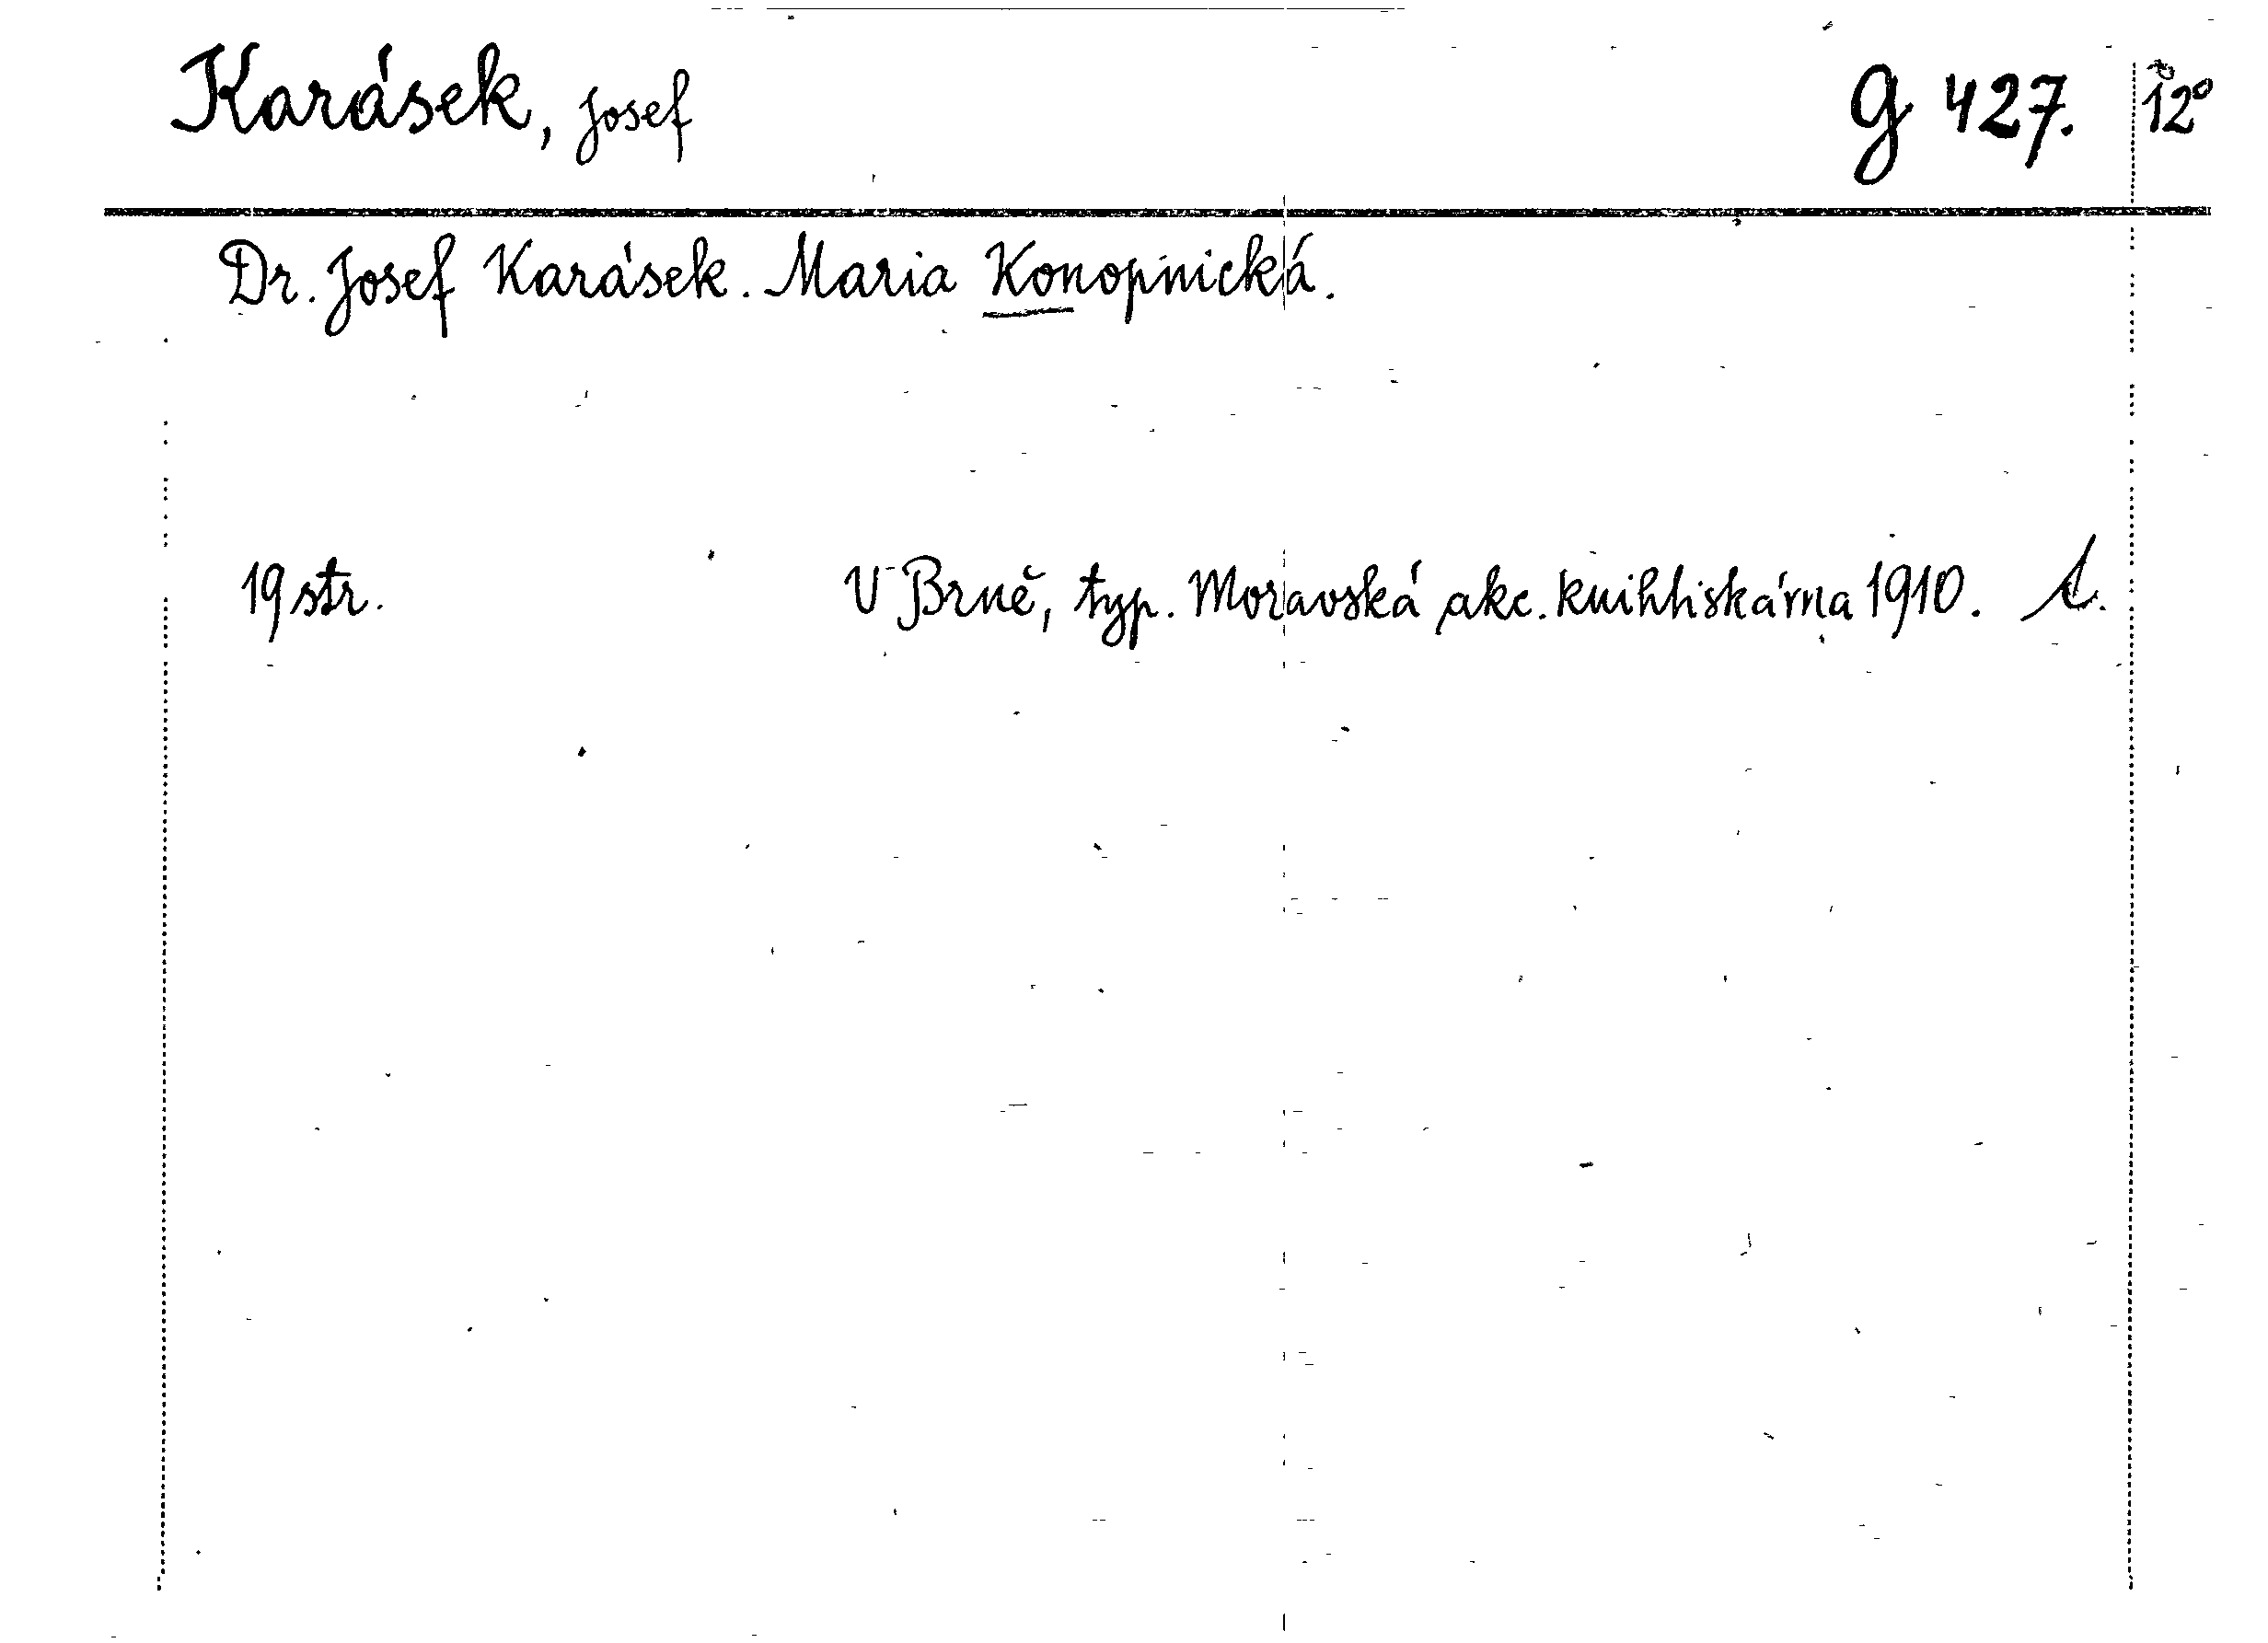 Karásek, Josef G 427. 12°
Dr. Josef Karásek. Maria Konopnická.
19 str. V Brně, typ. Moravská akc. knihtiskárna 1910.